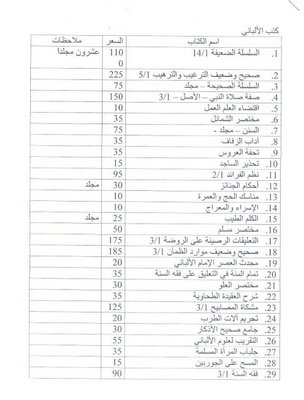 كتب الألباني
اسم الكتاب السعر ملاحظات
1. السلسلة الضعيفة 14/1 1100 عشرون مجلدا
2. صحيح وضعيف الترغيب والترهيب 5/1 225
3. السلسلة الصحيحة – مجلد 75
4. صفة صلاة النبي – الأصل – 3/1 150
5. اقتضاء العلم العمل 10
6. مختصر الشمائل 35
7. السنن – مجلد - 75
8. آداب الزفاف 35
9. تحفة العروس 35
10. تحذير الساجد 15
11. نظم الفرائد 2/1 95
12. أحكام الجنائز 30 مجلد
13. مناسك الحج والعمرة 10
14. الإسراء والمعراج 15
15. الكلم الطيب 25 مجلد
16. مختصر مسلم 50
17. التعليقات الرضية على الروضة 3/1 175
18. صحيح وضعيف موارد الظمآن 3/1 185
19. محدث العصر الإمام الألباني 20
20. تمام المنة في التعليق على فقه السنة 35
21. مختصر العلو 30
22. شرح العقيدة الطحاوية 35
23. مشكاة المصابيح 3/1 125
24. تحريم آلات الطرب 20
25. جامع صحيح الأذكار 30
26. التقريب لعلوم الألباني 55
27. جلباب المرأة المسلمة 35
28. المسح على الجوربين 15
29. فقه السنة 3/1 90